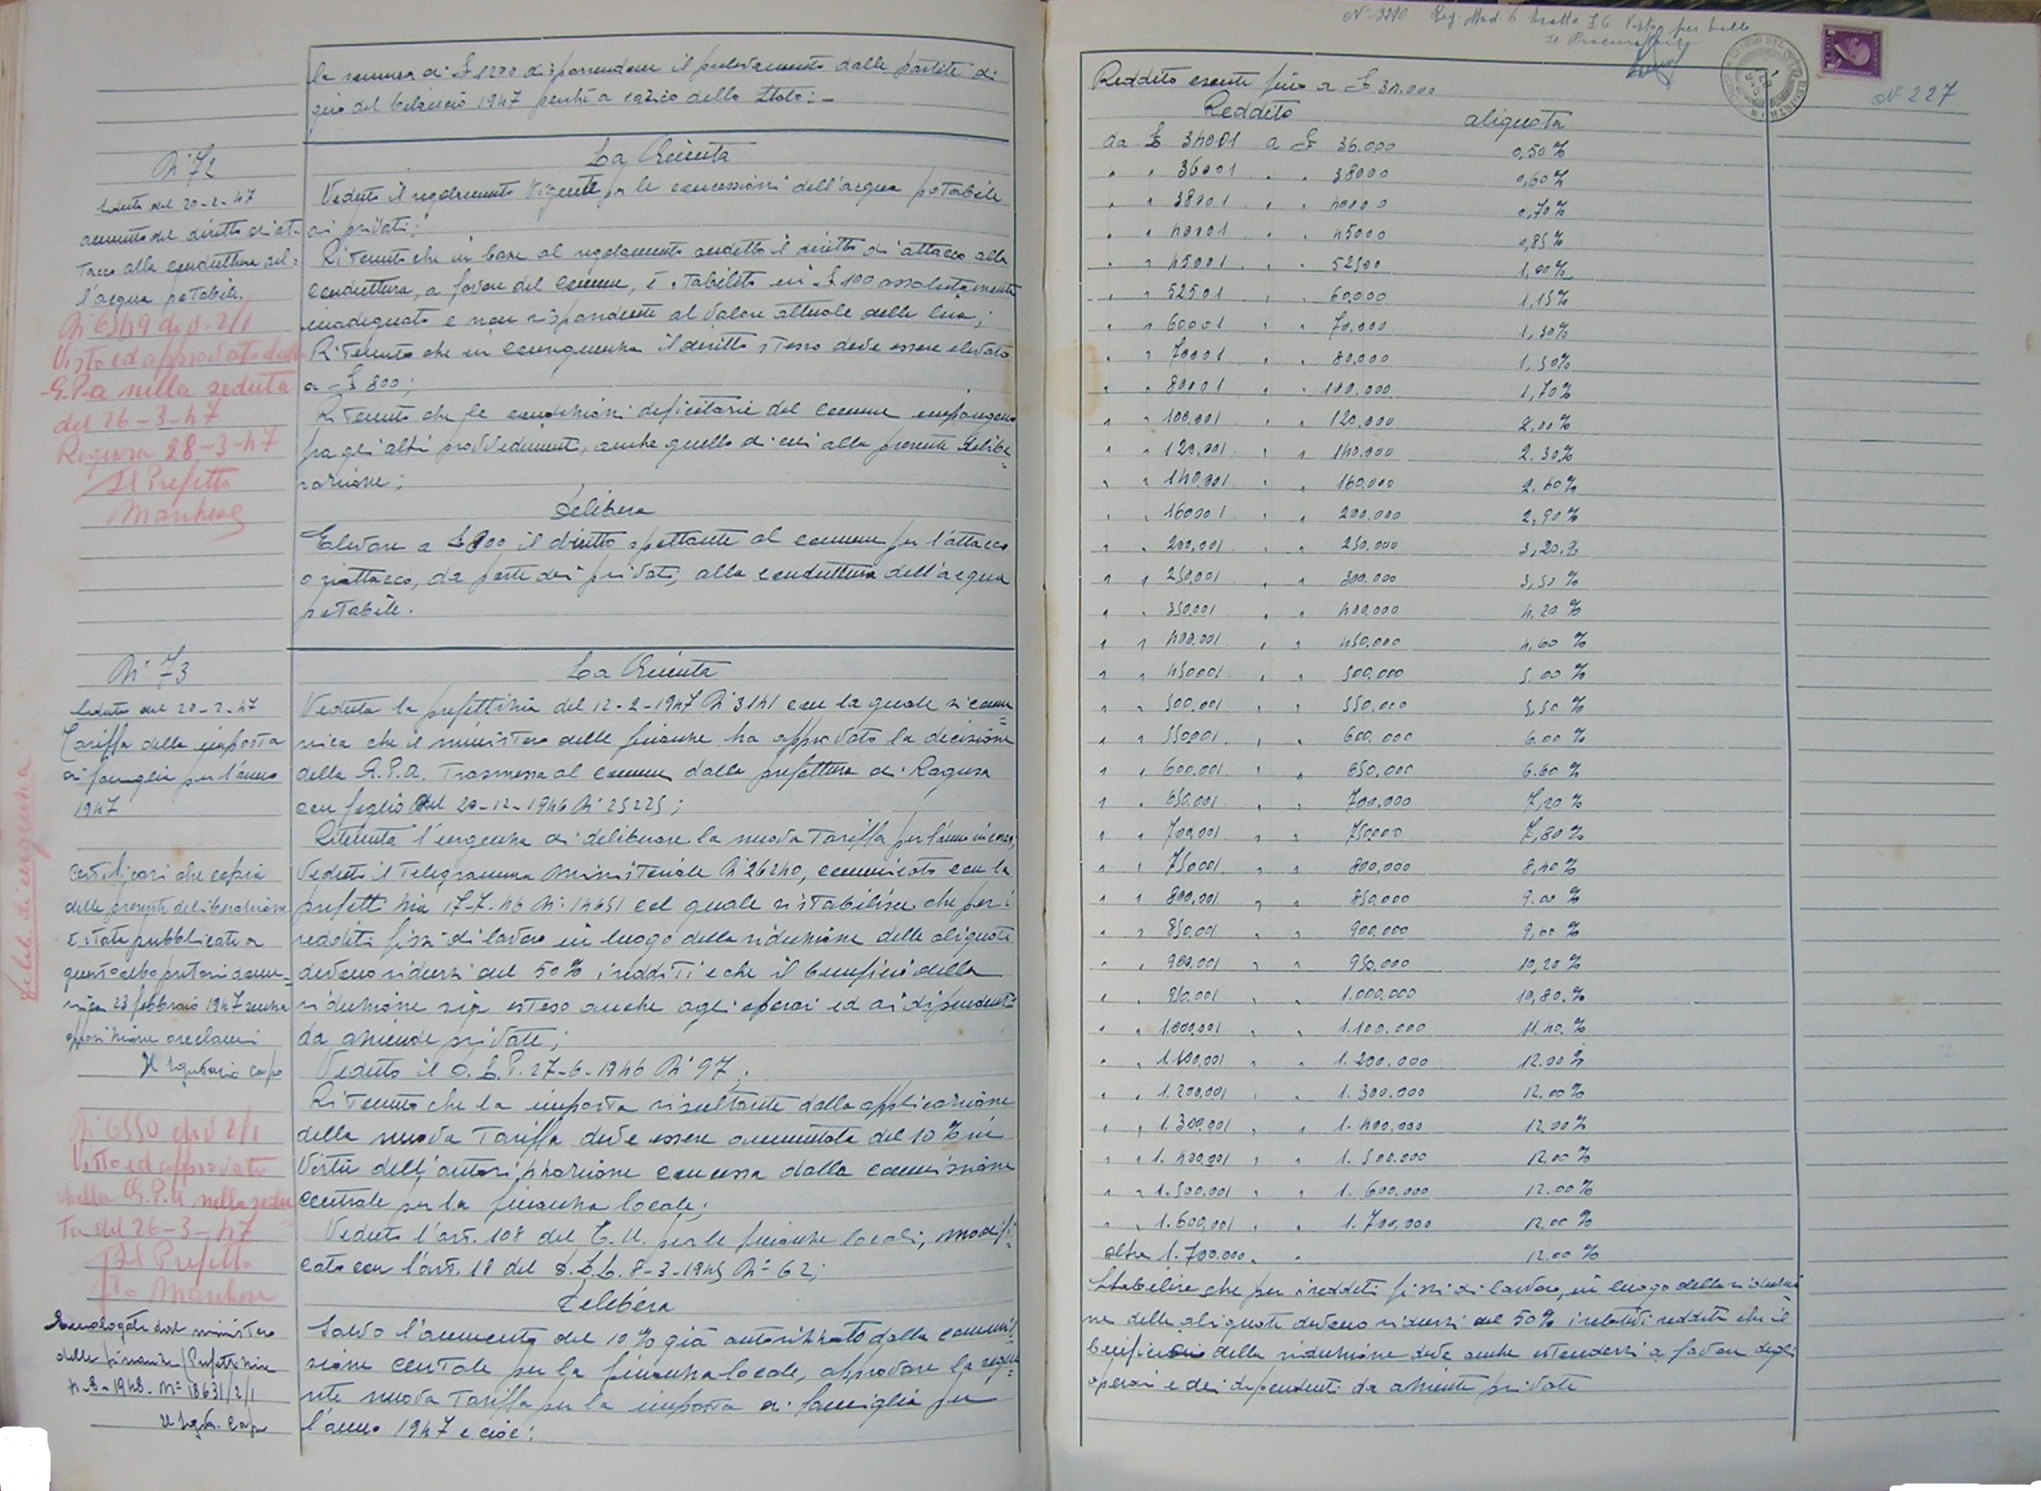 la somma di £ 1200 disponendone il prelevamento dalle partite di
giro del bilancio 1947 perché a carico dello Stato: -
N° 72
Seduta del 20-2-47
aumento del diritto di at-
tacco alla conduttura del-
l'acqua potabile.
N° 6549 div. 2/1
Visto ed approvato dalla
G.P.A nella seduta
del 26-3-47
Ragusa 28-3-47
Il Prefetto
La Giunta
Veduto il regolamento vigente per le concessioni dell'acqua potabile
ai privati;
Ritenuto che in base al regolamento anzidetto il diritto di attacco alla
conduttura, a favore del comune, è stabilito in £ 100 assolutamente
inadeguato e non rispondente al valore attuale della lira;
Ritenuto che in conseguenza il diritto stesso deve essere elevato
a £ 800;
Ritenuto che le condizioni deficitarie del comune impongono
fra gli altri provvedimenti, anche quello di cui alla presente delibe-
razione;
Delibera
Elevare a £ 800 il diritto spettante al comune per l'attacco
o riattacco, da parte dei privati, alla conduttura dell'acqua
potabile.
N° 73
Seduta del 20-2-47
Tariffa della imposta
di famiglia per l'anno
1947
Delib. di urgenza
Certificasi che copia
della presente deliberazione
è stata pubblicata a
questo albo pretorio dome-
nica 23 febbraio 1947 senza
opposizione o reclami
Il Segretario Capo
N° 6550 div 2/1
Visto ed approvato
dalla G.P.A nella sedu
ta del 26-3-47
Il Prefetto
Omologata dal ministero
delle finanze (Prefettizia
n. 18631/2/1
Il Segr. Capo
La Giunta
Veduta la prefettizia del 12-2-1947 N° 3141 con la quale si comu
nica che il ministero delle finanze ha approvato la decisione
della G.P.A. trasmessa al comune dalla prefettura di Ragusa
con foglio del 20-12-1946 N° 25225;
Ritenuta l'urgenza di deliberare la nuova tariffa per l'anno in corso;
Veduto il telegramma ministeriale N° 26240, comunicato con la
prefettizia 17-7-46 N° 14651 col quale si stabilisce che per i
redditi fissi di lavoro in luogo della riduzione delle aliquote
devono ridursi del 50% i redditi e che il beneficio della
riduzione sia esteso anche agli operai ed ai dipendenti
da aziende private;
Veduto il D.L.P. 27-6-1946 N° 97;
Ritenuto che la imposta risultante dalla applicazione
della nuova tariffa deve essere aumentata del 10% in
virtù dell'autorizzazione concessa dalla commissione
centrale per la finanza locale;
Veduto l'art. 108 del T.U. per le finanze locali, modifi-
cato con l'art. 18 del D.L.L. 8-3-1945 N° 62;
Delibera
Salvo l'aumento del 10% già autorizzato dalla commis-
sione centrale per la finanza locale, approvare la segue-
nte nuova tariffa per la imposta di famiglia per
l'anno 1947 e cioè:
N° 3290 Reg. Mod. 6 Visto per bollo
Il Procuratore
N° 227
Reddito esente fino a £ 34.000
Reddito aliquota
da £ 34001 a £ 36.000 0,50%
" " 36001 " " 38000 0,60%
" " 38001 " " 40000 0,70%
" " 40001 " " 45000 0,85%
" " 45001 " " 52500 1,00%
" " 52501 " " 60.000 1,15%
" " 60001 " " 70.000 1,30%
" " 70001 " " 80.000 1,50%
" " 80001 " " 100.000 1,70%
" " 100.001 " " 120.000 2.00%
" " 120.001 " " 140.000 2.30%
" " 140.001 " " 160.000 2.60%
" " 160001 " " 200.000 2,90%
" " 200.001 " " 250.000 3,20%
" " 250.001 " " 300.000 3,50 %
" " 350.001 " " 400.000 4.20 %
" " 400.001 " " 450.000 4,60 %
" " 450001 " " 500.000 5.00 %
" " 500.001 " " 550.000 5,50 %
" " 550.001 " " 600.000 6.00 %
" " 600.001 " " 650.000 6.60 %
" " 650.001 " " 700.000 7,20 %
" " 700.001 " " 750.000 7,80 %
" " 750001 " " 800.000 8,40 %
" " 800.001 " " 850.000 9.00 %
" " 850.001 " " 900.000 9,00 %
" " 900.001 " " 950.000 10,20 %
" " 950.001 " " 1.000.000 10,80 %
" " 1.000.001 " " 1.100.000 11.40 %
" " 1.100.001 " " 1.200.000 12.00 %
" " 1.200.001 " " 1.300.000 12.00 %
" " 1.300.001 " " 1.400.000 12.00%
" " 1.400.001 " " 1.500.000 12.00 %
" " 1.500.001 " " 1.600.000 12.00%
" " 1.600.001 " " 1.700.000 12.00 %
oltre 1.700.000 " 12.00 %
Stabilire che per i redditi fissi di lavoro, in luogo della riduzio
ne delle aliquote devono ridursi del 50% i relativi redditi che il
beneficio della riduzione deve anche estendersi a favore degli
operai e dei dipendenti da aziende private